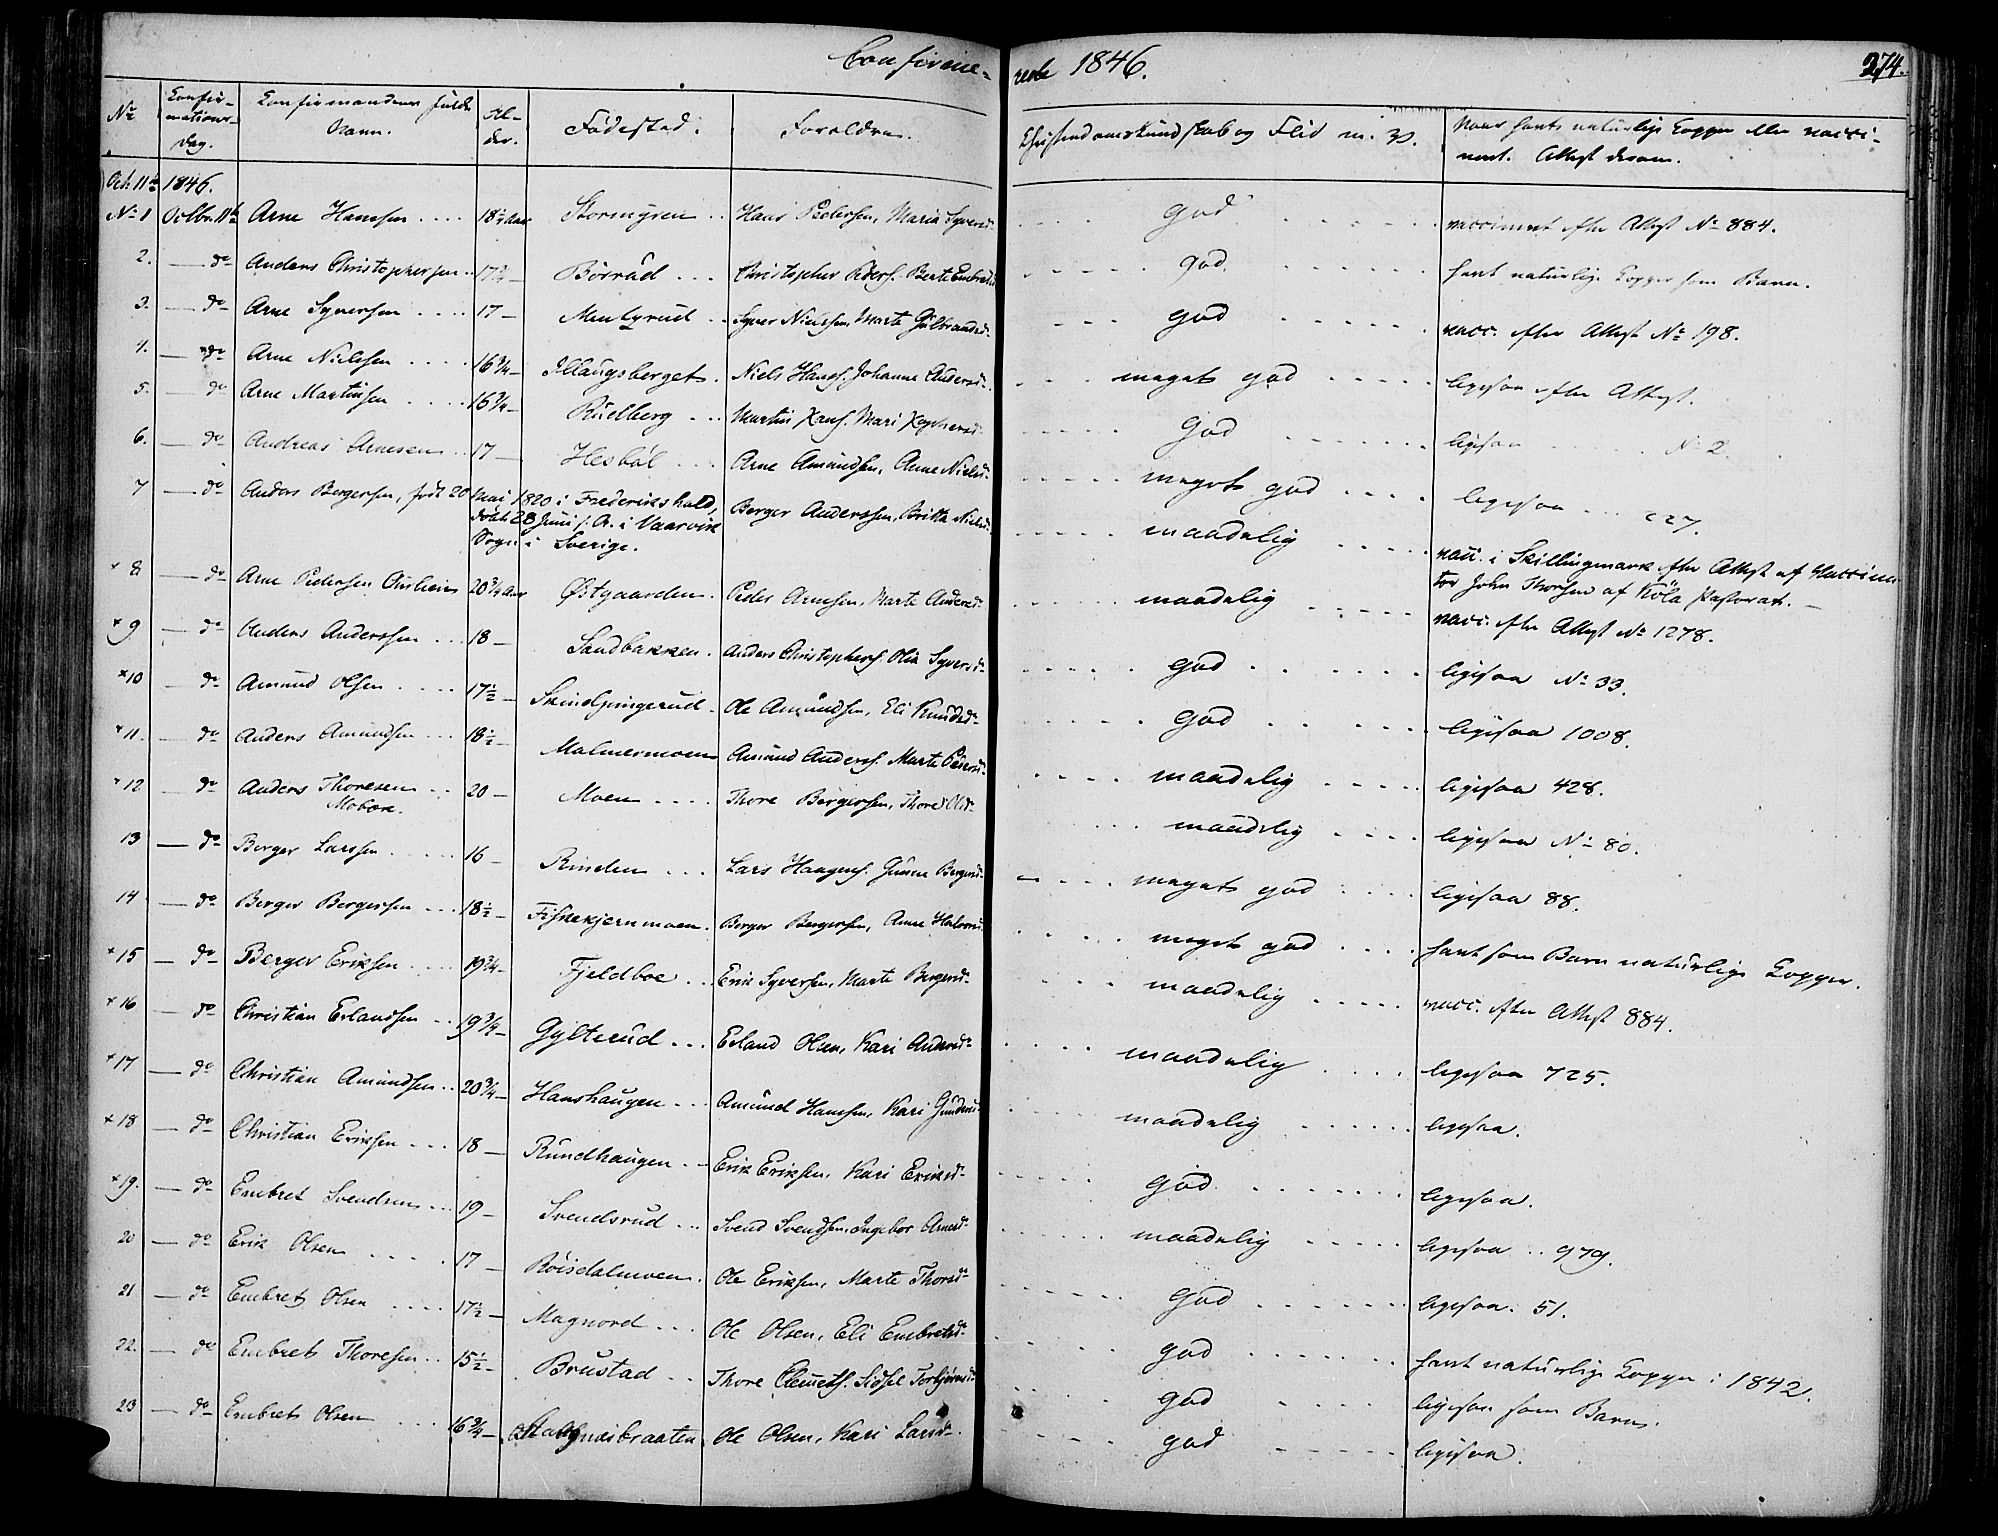 Confirme-
rede 1846.
274.
No Confir-mations-dag. Confirmandens fulde Navn. Al-der. Fødested. Forældre. Christendomskundskab og Flid m. v. Naar havt naturlige Kopper eller vacci-neret. Attest derom.
Oct. 11te 1846.
No 1 Octbr. 11te Arne Hanssen 18 1/2 Aar Stormyren Hans Pedersen, Maria Syversd. god vaccineret efter Attest No 884.
2. — do Anders Christophersen 17 Børrud Christopher Peders. Berte Embretsd. god. havt naturlige Kopper som Barn.
3. — do Arne Syversen 17 — Mentzrud Syver Nielssen, Marte Gulbrandsd. god vacc. efter Attest No 198.
4. — do Arne Nielsen 16 3/4 — Illaugsberget Niels Hanss. Johanne Andersd. meget god ligesaa efter Attest.
5. — do Arne Martinsen 16 3/4 — Rudberg Martin Mari god ligesaa No 2.
6. — do Andreas Arnesen 17 — Hesbøl Arne Amundsen, Anne Nielsd. meget god ligesaa 227.
7 — do Anders Bergersen, født 20 Mai 1820 i Frederikshald, døbt 28 Juni s. A. i Vaarvik Sogn i Sverige. Berger Anderssen, Britta Nielsd. maadelig vacc. i Skillingmark efter Attest af Vaccina-tør John Thorsen af Köla Pastorat. —
× 8 — do Arne Pedersen 20 3/4 Aar Østgaarden Peder Arnesen, Marte Andersd. maadelig vacc. efter Attest No 1278.
× 9 — do Anders Anderssen 18 — Sandbakken Anders Christophers. Olia Syversd. god ligesaa No 33.
× 10 — do Amund Olsen 17 1/2 — Skindpungerud Ole Amundsen, Eli Knudsd. god ligesaa 1008.
× 11. — do Anders Amundsen 18 1/2 — Malmermoen Amund Anderss. Marte Pedersd. maadelig ligesaa 428.
× 12 — do Anders Thoresen Mobæk. 20 — Moen Thore Bergersen, Thore Olsd. maadelig ligesaa No 80.
13 — do Berger Larssen 16 — Rinden Lars Haagens. Gunne Bergersd. meget god ligesaa 88.
14 — do Berger Bergersen 18 1/2 — Fiskekjernmoen Berger Bergersen, Anne Halvorsd. meget god havt som Barn naturlige Kopper.
× 15 — do Berger Eriksen 19 3/4 — Fjeldboe Erik Syversen, Marte Bergersd. maadelig vacc. efter Attest 884.
× 16 — do Christian Erlandsen 19 3/4 — Gylterud Erland Olsen, Kari Andersd. maadelig ligesaa 725.
× 17 — do Christian Amundsen 20 3/4 — Hanshaugen Amund Hanssen, Kari Gundersd. maadelig ligesaa.
× 18 — do Christian Eriksen 18 — Rundhaugen Erik Eriksen, Kari Eriksd. god ligesaa.
× 19. — do Embret Svendsen 19 — Svendsrud Svend Svendsen, Ingebor Arnesd. maadelig ligesaa 979.
20 — do Erik Olsen 17 — Røisdalmoen Ole Eriksen, Marte Thorsd. god ligesaa 51.
21 — do Embret Olsen 17 1/2 — Magnord Ole Olsen, Eli Embretsd. god havt naturlige Kopper i 1842.
22. — do Embret Thoresen 15 1/2 — Brustad Thore Clemets. Sidsel Torbjørnsd. god ligesaa som Barn.
23 — do Embret Olsen 16 3/4 — Ole Olsen, Kari Larsd. god ligesaa.